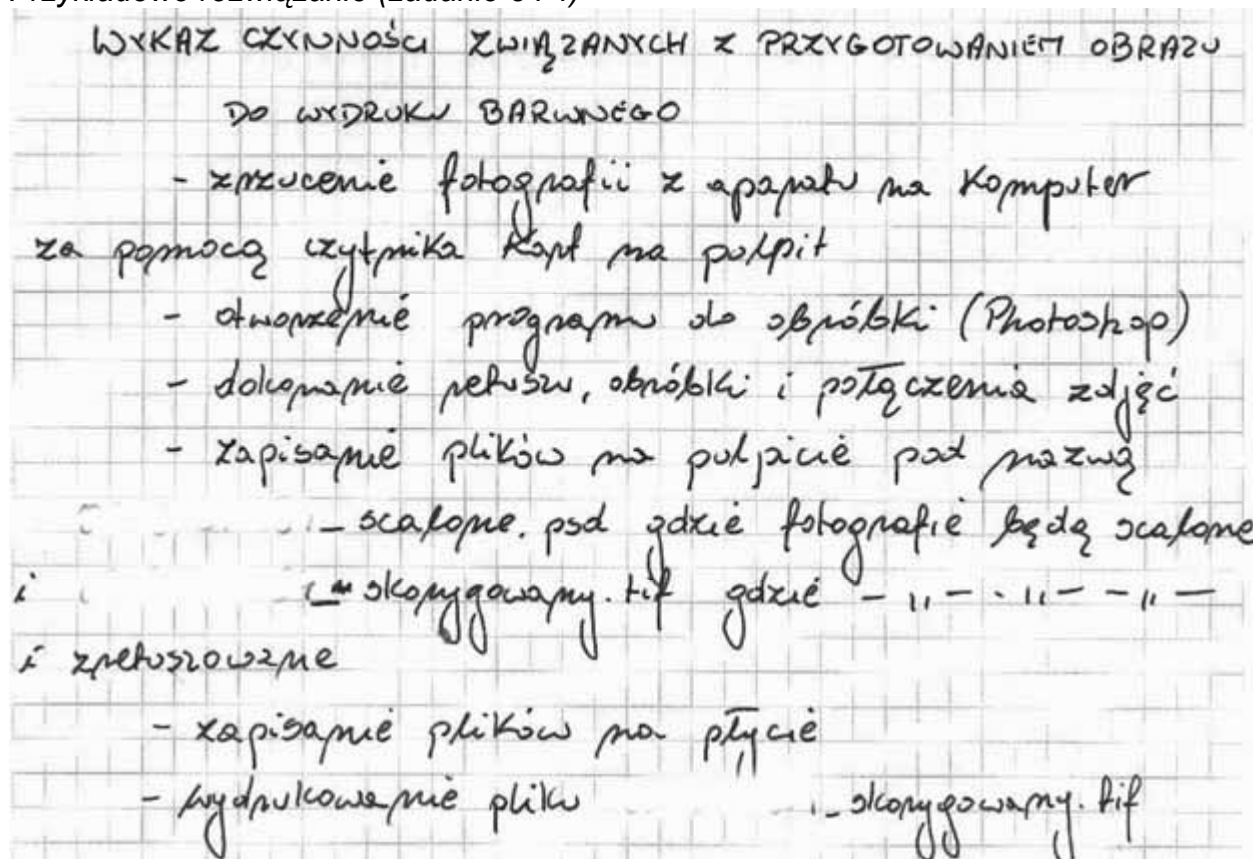 WYKAZ CZYNNOŚCI ZWIĄZANYCH Z PRZYGOTOWANIEM OBRAZU
DO WYDRUKU BARWNEGO
- zrzucenie fotografii z aparatu na komputer
za pomocą czytnika kart na pulpit
- otworzenie programu do obróbki (Photoshop)
- dokonanie retuszu, obróbki i połączenia zdjęć
- zapisanie plików na pulpicie pod nazwą
- scalone.psd gdzie fotografie będą scalone
i - skorygowany.tif gdzie - " - - " - - " -
i zretuszowane
- zapisanie plików na płycie
- wydrukowanie pliku - skorygowany.tif